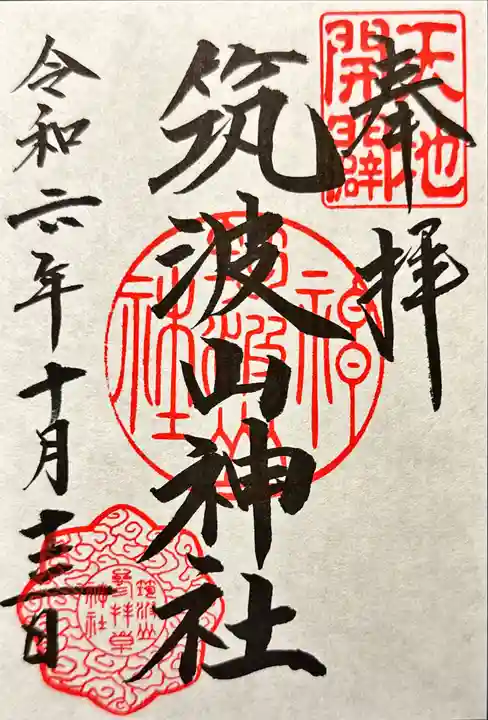 奉拝
天地
開闢
筑波山神社
筑波山
神社
令和六年十月十三日
筑波山
參拝章
神社